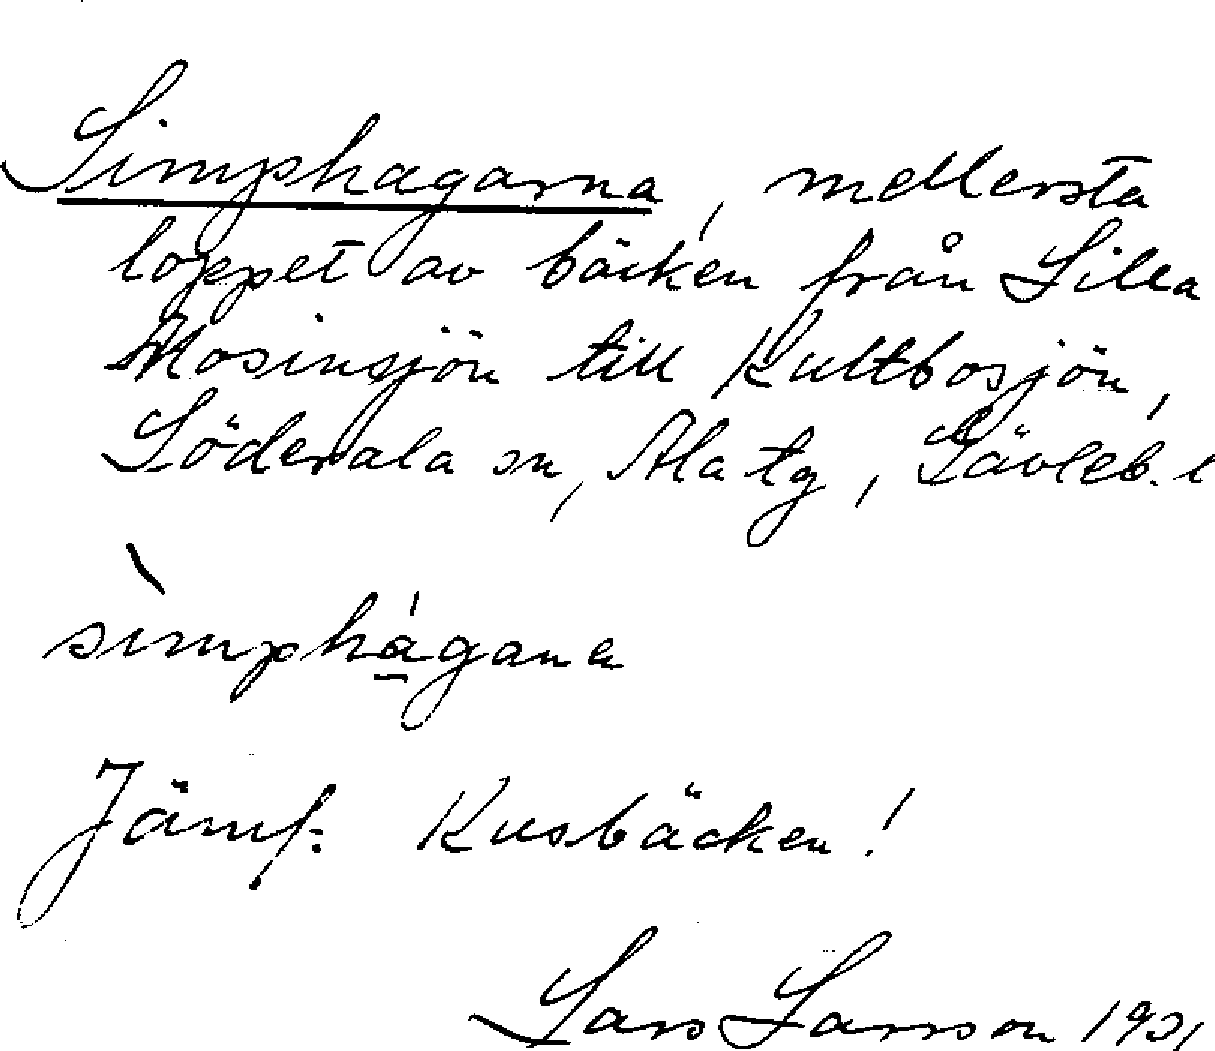 Simphagarna, mellersta
loppet av bäcken från Lilla
Mosinsjön till Kultbosjön,
Söderala sn, Ala tg, Gävleb. l
simphágana
Jämf. Kusbäcken!
Lars Larsson 1931